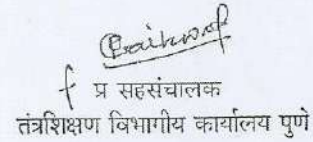 प्र सहसंचालक
तंत्रशिक्षण विभागीय कार्यालय पुणे